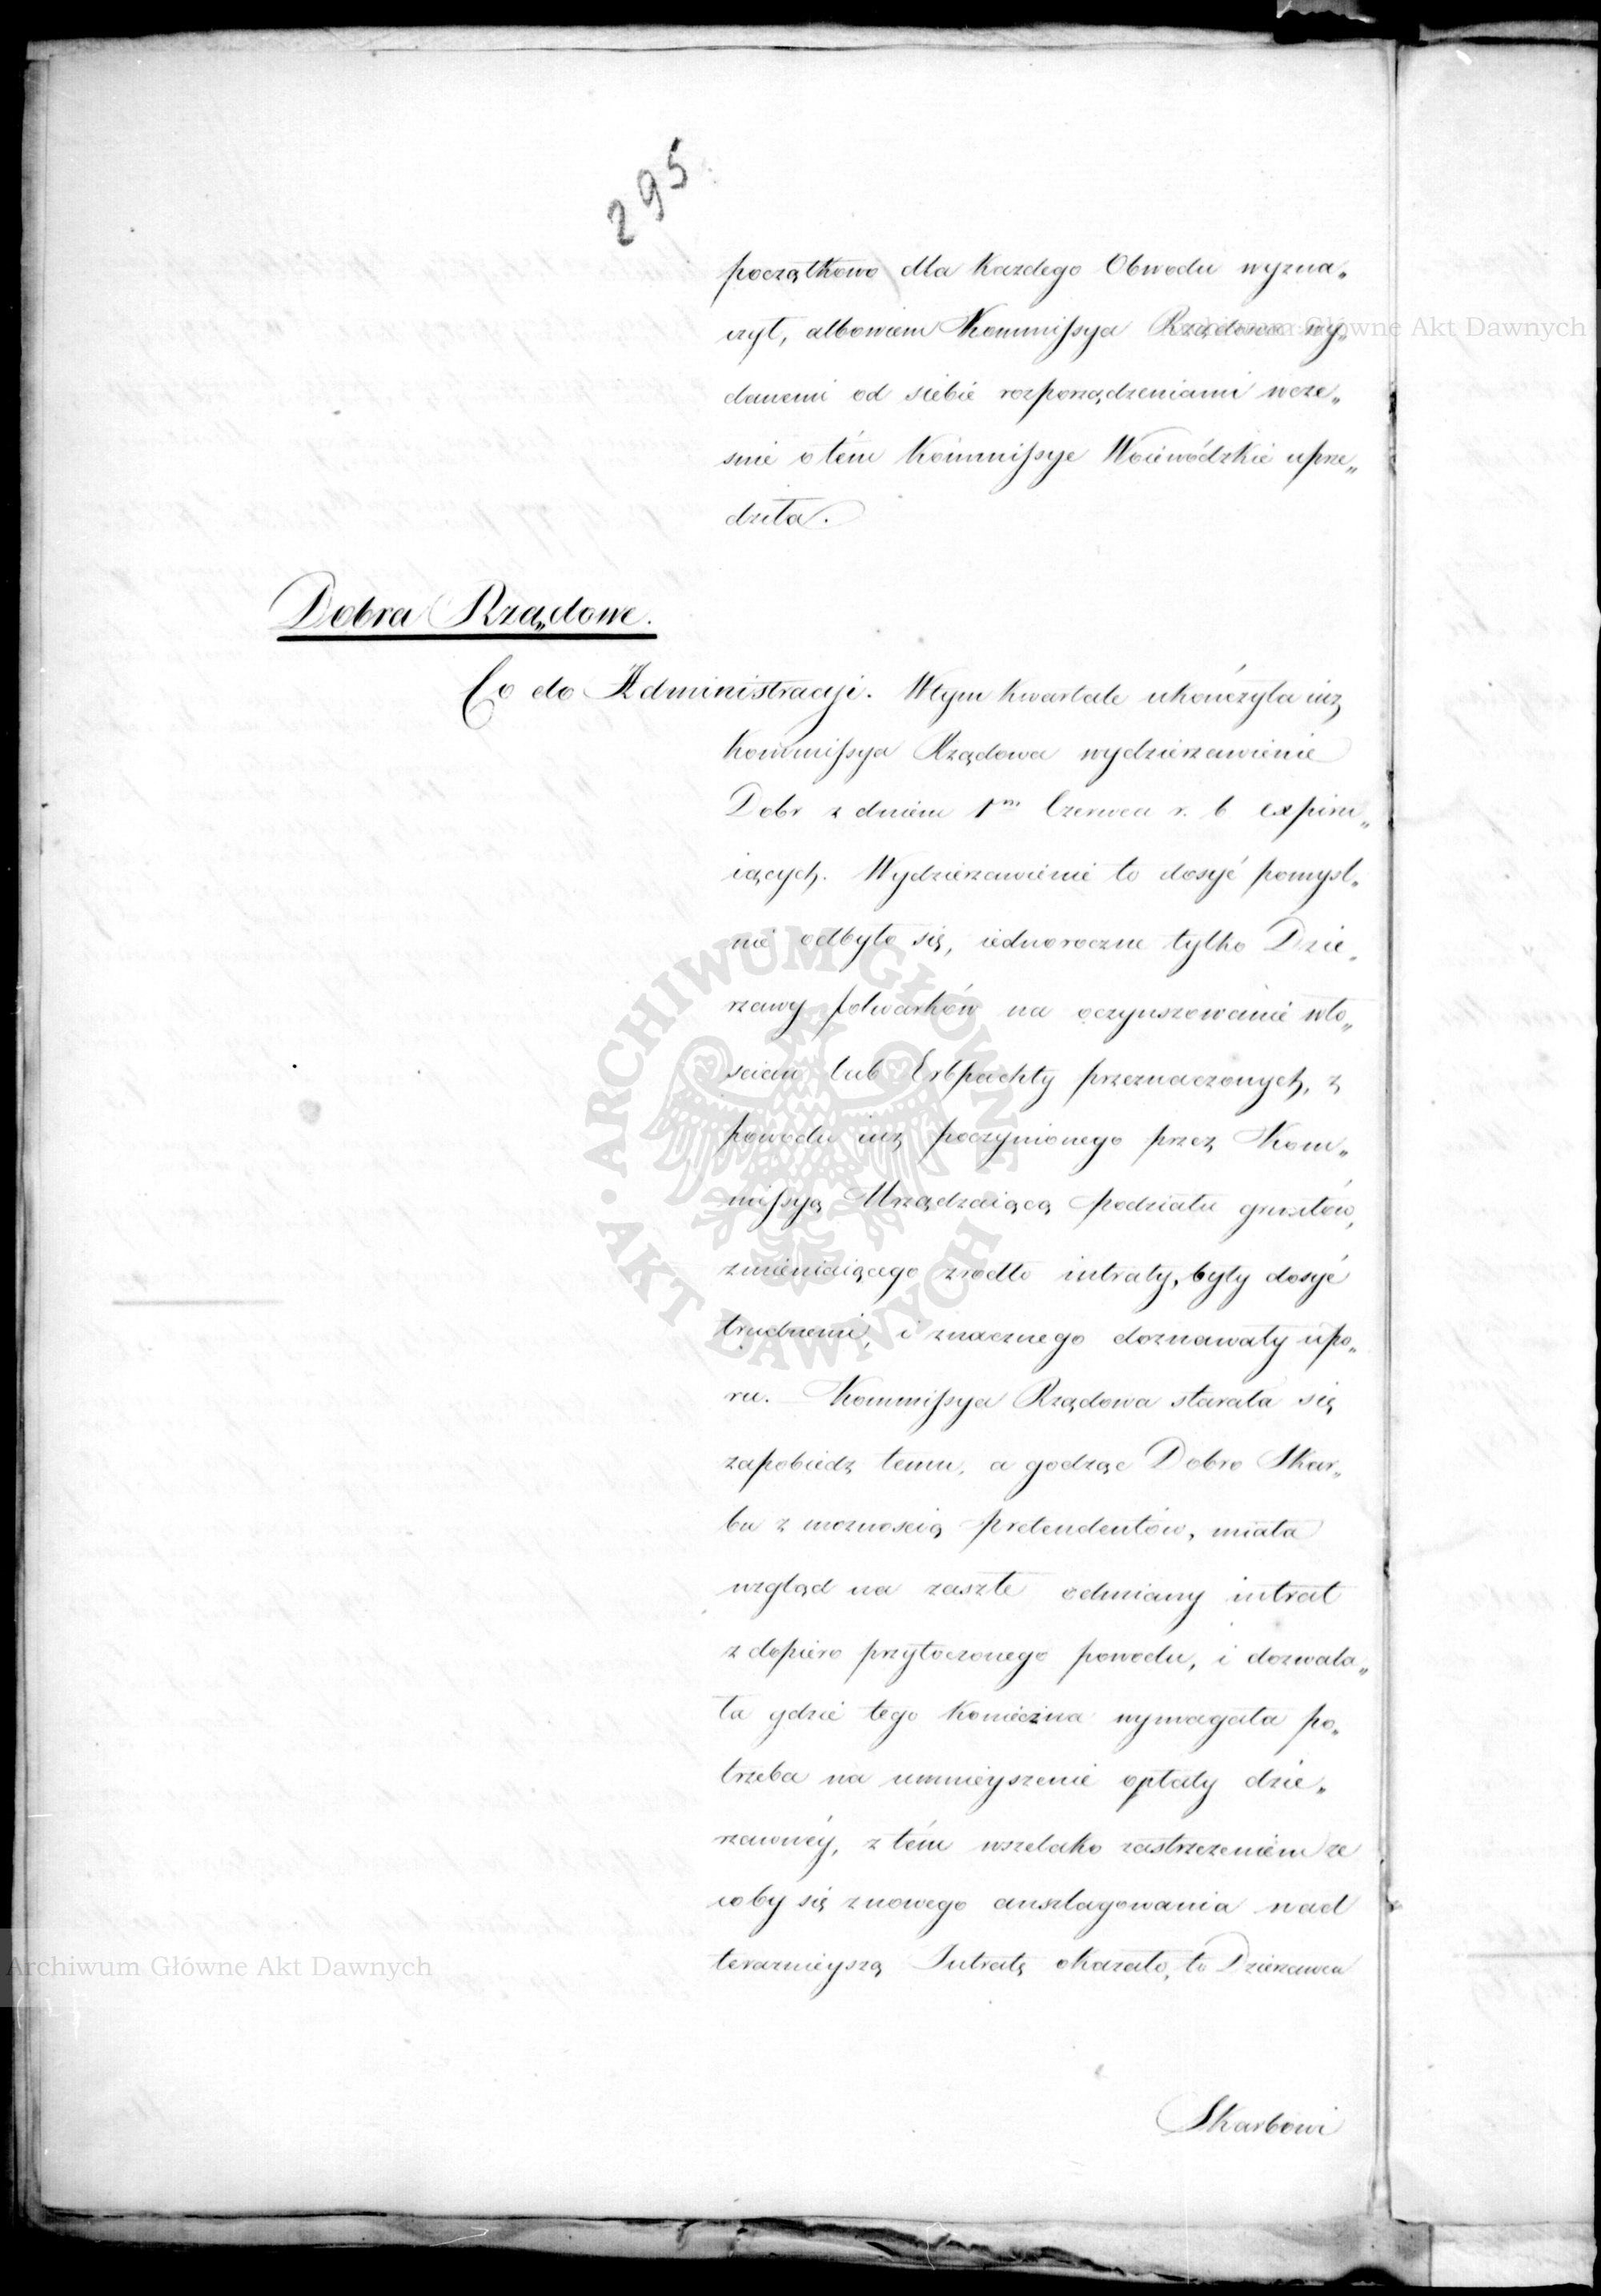 295
początkowo dla każdego Obwodu wyzna„
czył, albowiem Kommissya Rządowa wy„
danemi od siebie rozporządzeniami wcze„
snie o tém Kommissye Woiewódzkie uprze„
dziła.
Dobra Rządowe.
Co do Administracji. W tym kwartale ukończyła iuz
Kommissya Rządowa wydzierzawienie
Dobr z dniem 1m Czerwca r. b. expiru„
iących. Wydzierzawienie to dosyć pomysl„
nie odbyło się, iednoroczne tylko Dzie„
rzawy folwarków na oczynszowanie wło„
scian lub Erbpachty przeznaczonych, z
powodu iuz poczynionego przez Kom„
missyą Urządzaiącą podziału gruntów,
zmieniaiącego zrodło intraty, były dosyć
trudnemi, i znacznego doznawały upo„
ru. Kommissya Rządowa starała się
zapobiedz temu, a godząc Dobro Skar„
bu z moznoscią pretendentów, miała
wzgląd na zaszłe odmiany intrat
z dopiero przytoczonego powodu, i dozwala„
ła gdzie tego konieczna wymagała po„
trzeba na umnieyszenie opłaty dzie„
rzawnéy, z tém wszelako zastrzezeniem ze
coby się z nowego anszlagowania nad
teraznieyszą Intratę okazało, to Dzierzawca
Skarbowi
Archiwum Główne Akt Dawnych
Archiwum Główne Akt Dawnych
ARCHIWUM GŁÓWNE • AKT DAWNYCH •